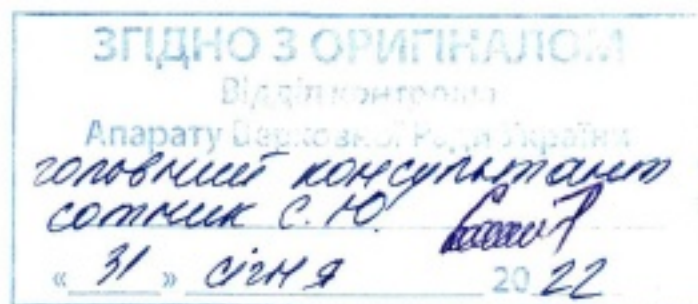 ЗГІДНО З ОРИГІНАЛОМ
Відділ контролю
Апарату Верховної Ради України
головний консультант
сотник С. Ю.
« 31 » січня 2022